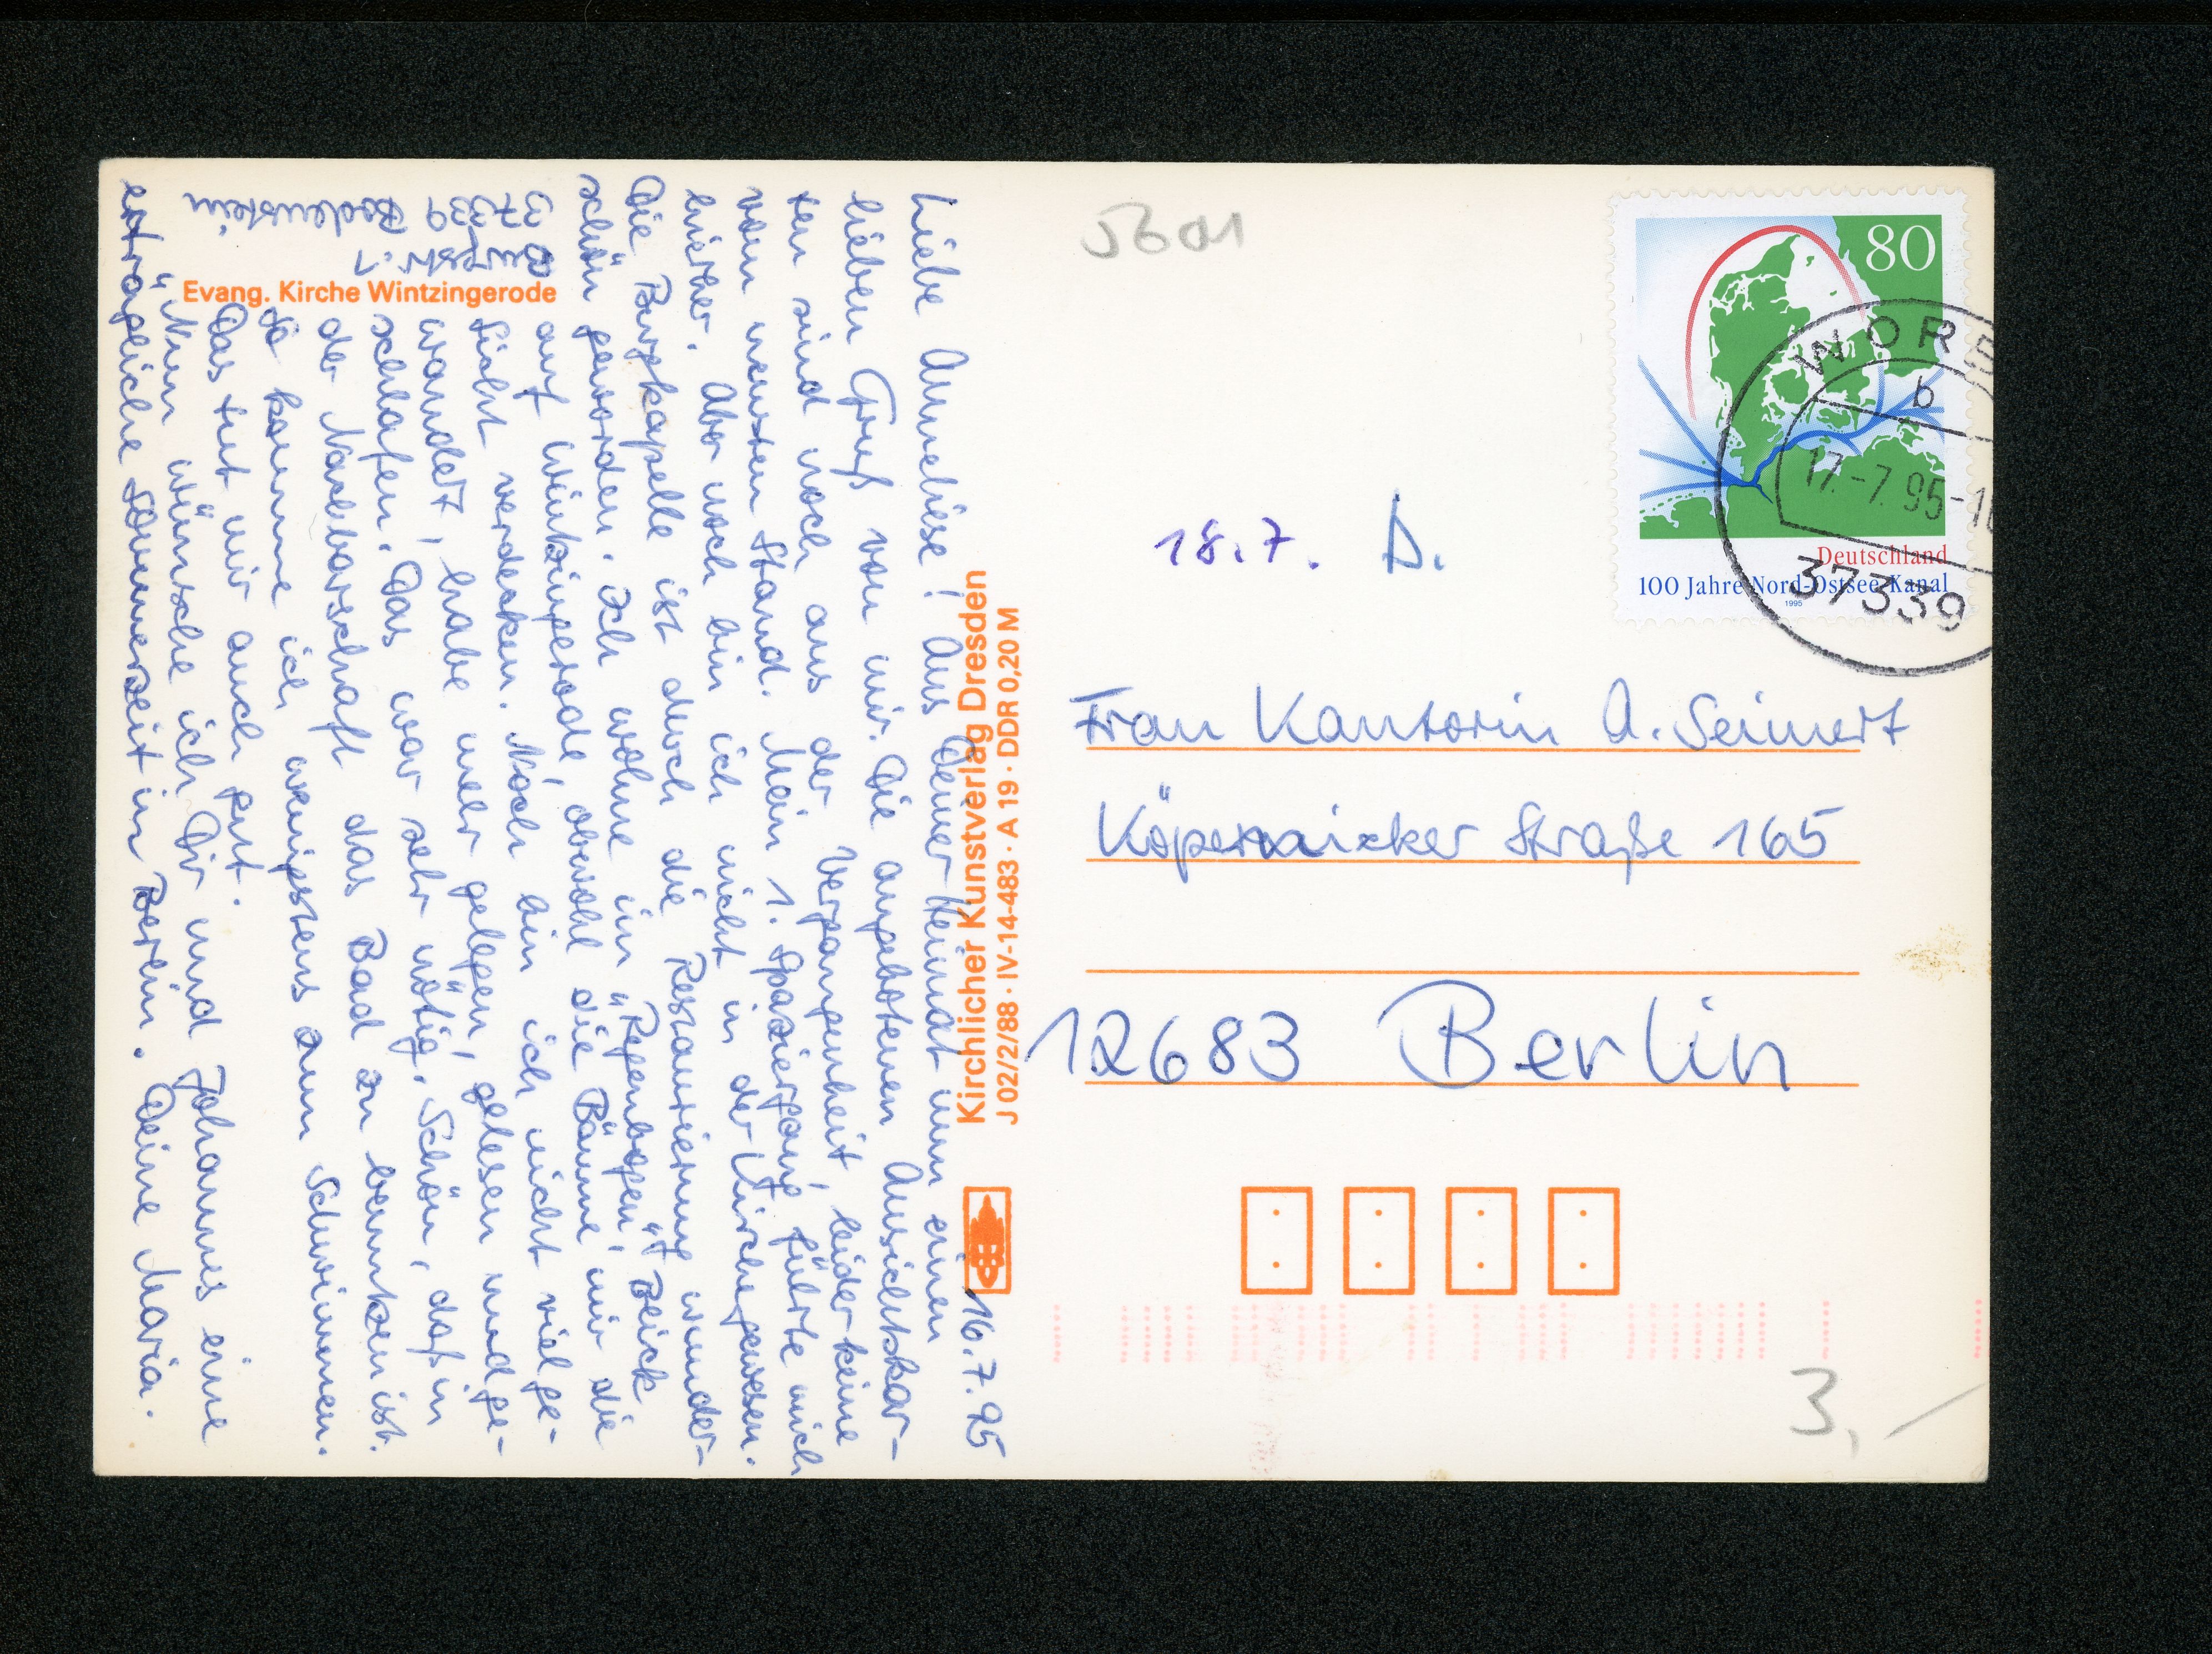 16.7.95
Liebe Anneliese! Aus Deiner Heimat nun einen
lieben Gruß von mir. Die angebotenen Ansichtskar-
ten sind noch aus der Vergangenheit, leider keine
vom neuesten Stand. Mein 1. Spaziergang führte mich
hierher. Aber noch bin ich nicht in der Kirche gewesen.
Die Burgkapelle ist durch die Restaurierung wunder-
schön geworden. Ich wohne im "Regenbogen", Blick
auf Wintzingerode, obwohl die Bäume mir die
Sicht verdecken. Noch bin ich nicht viel ge-
wandert, habe mehr gelegen, gelesen und ge-
schlafen. Das war sehr nötig. Schön, daß in
der Nachbarschaft das Bad zu benutzen ist.
So komme ich wenigstens zum Schwimmen.
Das tut mir auch gut.
Nun wünsche ich Dir und Johannes eine
erträgliche Sommerzeit in Berlin. Deine Maria.
Burgstr. 1
37339 Bodenstein
Evang. Kirche Wintzingerode
Kirchlicher Kunstverlag Dresden
J 02/2/88 · IV-14-483 · A 19 · DDR 0,20 M
5601
80
Deutschland
100 Jahre Nord-Ostsee-Kanal
1995
WORB
b
17.-7.95-1
37339
18.7. A.
Frau Kantorin A. Seimert
Köpenicker Straße 165
12683 Berlin
3,-